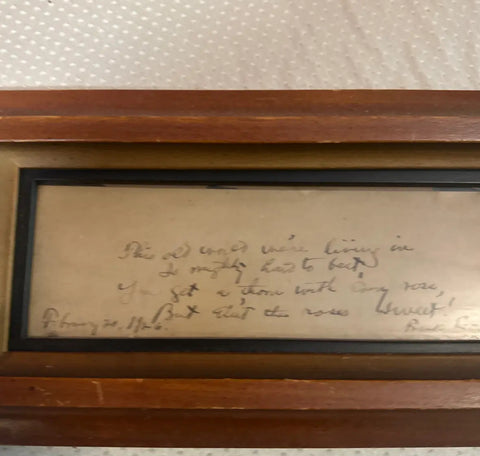 This old world we're living in
Is mighty hard to beat
You get a thorn with every rose,
But ain't the roses sweet!
February 20, 1926.